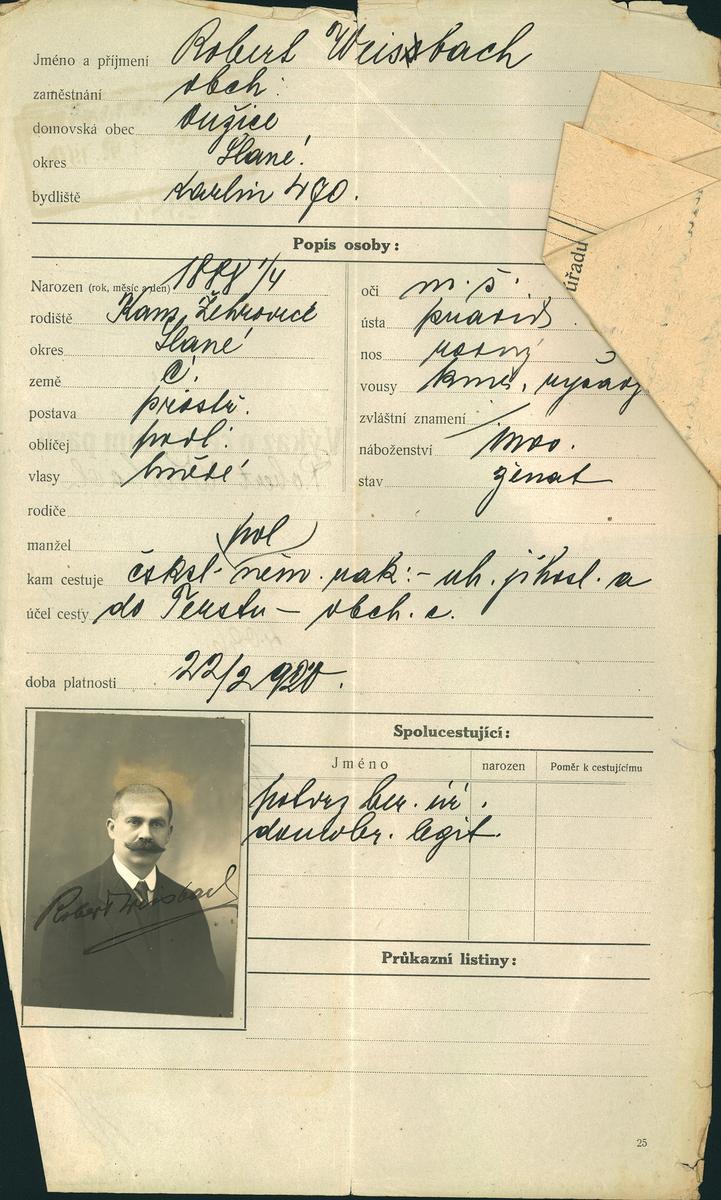 Jméno a příjmení Robert Weissbach
zaměstnání obch.
domovská obec Oužice
okres Slané
bydliště Karlín 490.
Popis osoby:
Narozen (rok, měsíc a den) 1888 1/4
rodiště Kam. Žehrovice
okres Slané
země Č.
postava prostř.
obličej podl.
vlasy hnědé
oči m. š.
ústa pravid.
nos rovný
vousy knír, ryšavý
zvláštní znamení
náboženství moo.
stav ženat
rodiče
manžel
pol
kam cestuje čsksl. něm. rak: - uh. jihosl. a
účel cesty do Terstu - obch. c.
doba platnosti 22/2 920.
Spolucestující:
Jméno narozen Poměr k cestujícímu
potvrz ber. úř.
domobr. legit.
Robert Weissbach
Průkazní listiny:
úřadu
25